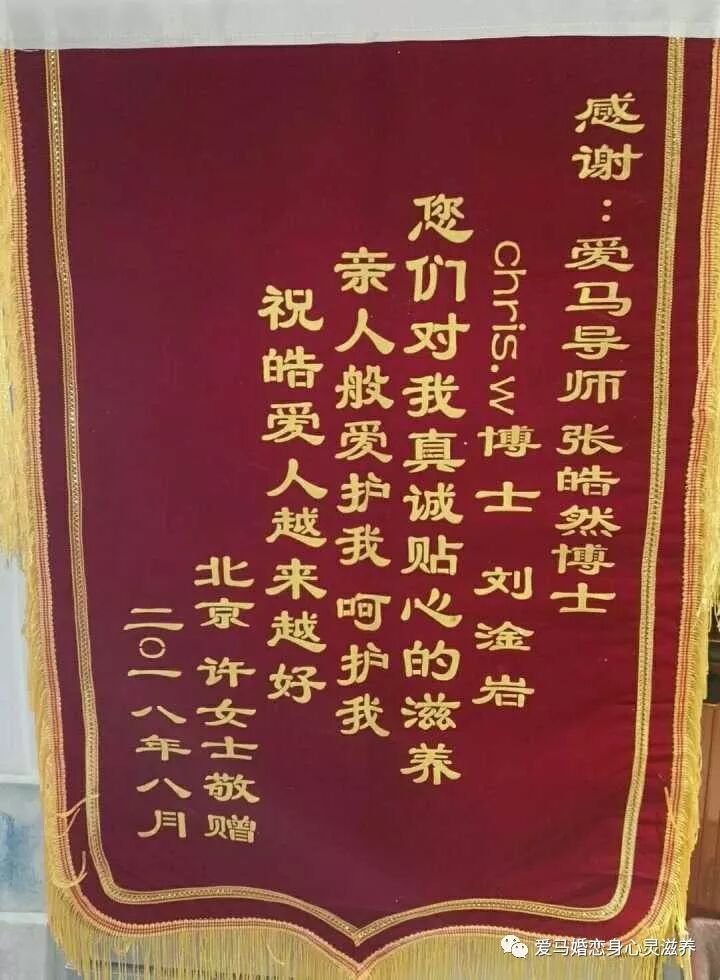 感谢：爱马导师张皓然博士
chris.w博士 刘淦岩
您们对我真诚贴心的滋养
亲人般爱护我呵护我
祝皓爱人越来越好
北京 许女士敬赠
二〇一八年八月
爱马婚恋身心灵滋养